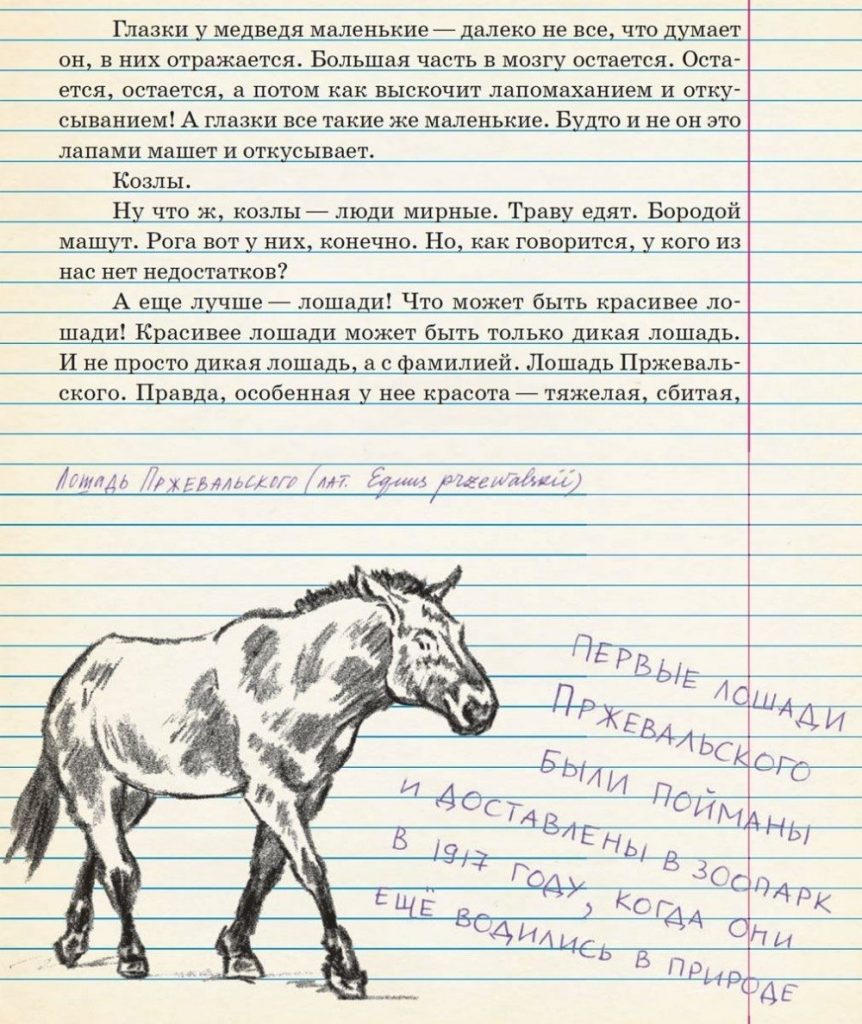 Глазки у медведя маленькие — далеко не все, что думает
он, в них отражается. Большая часть в мозгу остается. Оста-
ется, остается, а потом как выскочит лапомаханием и отку-
сыванием! А глазки все такие же маленькие. Будто и не он это
лапами машет и откусывает.
Козлы.
Ну что ж, козлы — люди мирные. Траву едят. Бородой
машут. Рога вот у них, конечно. Но, как говорится, у кого из
нас нет недостатков?
А еще лучше — лошади! Что может быть красивее ло-
шади! Красивее лошади может быть только дикая лошадь.
И не просто дикая лошадь, а с фамилией. Лошадь Пржеваль-
ского. Правда, особенная у нее красота — тяжелая, сбитая,
Лошадь Пржевальского (лат. Equus przewalskii)
ПЕРВЫЕ ЛОШАДИ
ПРЖЕВАЛЬСКОГО
БЫЛИ ПОЙМАНЫ
И ДОСТАВЛЕНЫ В ЗООПАРК
В 1917 ГОДУ, КОГДА ОНИ
ЕЩЁ ВОДИЛИСЬ В ПРИРОДЕ